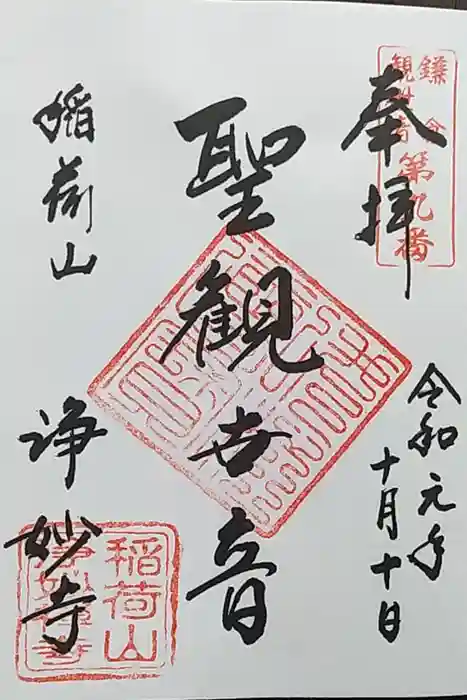 奉拝
鎌倉
観世音
第九番
令和元年
十月十日
聖観世音
稲荷山
浄妙寺
稲荷山
浄妙寺